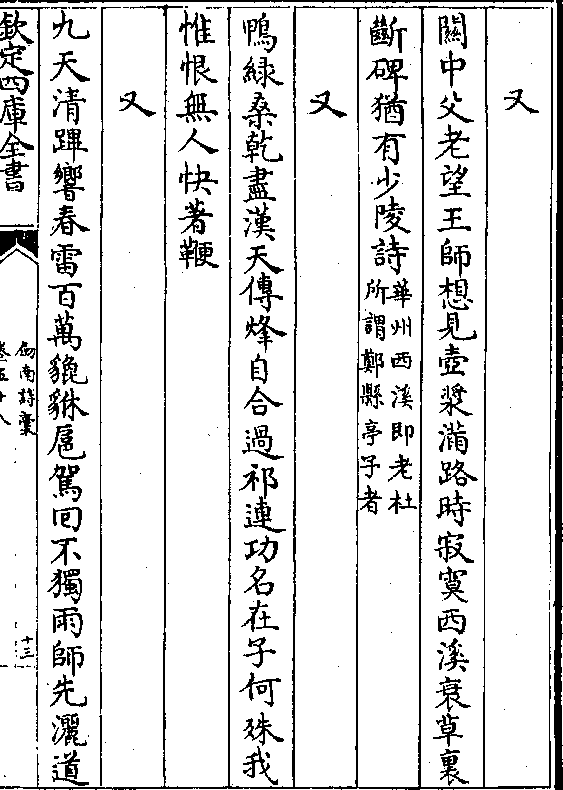 又
關中父老望王師想見壺漿滿路時寂寞西溪衰草裏
斷碑猶有少陵詩華州西溪即老杜所謂鄭縣亭子者
又
鴨綠桑乾盡漢天傳烽自合過祁連功名在子何殊我
惟恨無人快著鞭
又
九天清蹕響春雷百萬貔貅扈駕回不獨雨師先灑道
欽定四庫全書
劍南詩稾
卷五十八
十三